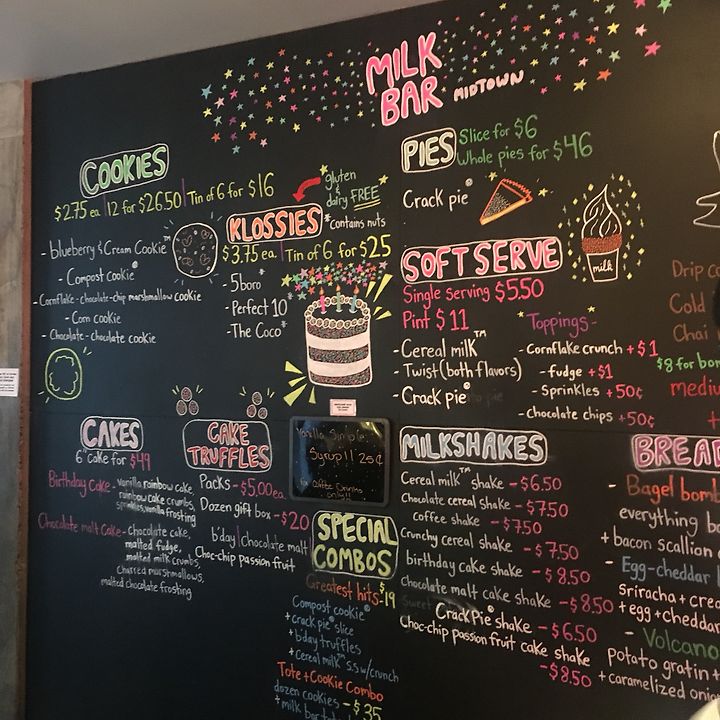 MILK
BAR MIDTOWN
COOKIES
$2.75 ea. | 12 for $26.50 | Tin of 6 for $16
- blueberry & Cream Cookie
- Compost Cookie®
- Cornflake - chocolate-chip marshmallow cookie
- Corn cookie
- Chocolate - chocolate cookie
gluten
&
dairy FREE
*contains nuts
KLOSSIES
$3.75 ea. | Tin of 6 for $25
- 5boro*
- Perfect 10*
- The Coco*
PIES
Slice for $6
Whole pies for $46
Crack pie®
SOFT SERVE
Single serving $5.50
Pint $11
- Cereal milk™
- Twist (both flavors)
- Crack pie®
milk
Toppings -
- Cornflake crunch + $1
- fudge + $1
- Sprinkles + 50¢
- chocolate chips + 50¢
Drip co
Cold
Chai
$8 for bo
mediu
CAKES
6" Cake for $49
Birthday Cake - vanilla rainbow cake,
rainbow cake crumbs,
sprinkles, vanilla frosting
Chocolate malt Cake - chocolate cake,
malted fudge,
malted milk crumbs,
charred marshmallows,
malted chocolate frosting
CAKE
TRUFFLES
Packs - $5.00 ea.
Dozen gift box - $20
b'day | chocolate malt
Choc-chip passion fruit
Vanilla Simple
Syrup!! 25¢
for Coffee Drinks
only!!
SPECIAL
COMBOS
Greatest hits - $19
Compost cookie®
+ crack pie® slice
+ b'day truffles
+ Cereal milk™ s.s w/crunch
Tote + Cookie Combo
dozen cookies - $35
+ milk bar
MILKSHAKES
Cereal milk™ shake - $6.50
Chocolate cereal shake - $7.50
Coffee shake - $7.50
Crunchy cereal shake - $7.50
birthday cake shake - $8.50
Chocolate malt cake shake - $8.50
Crack Pie® shake - $6.50
Choc-chip passion fruit cake shake
- $8.50
BREAD
- Bagel bomb
everything ba
+ bacon scallion
- Egg-cheddar
sriracha + cre
+ egg + cheddar
- Volcano
Potato gratin +
+ caramelized onio